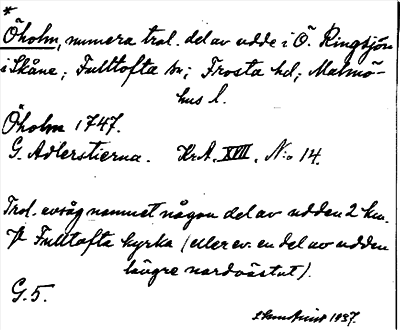 *
Öholm, numera trol. del av udde i Ö. Ringsjön
i Skåne; Fulltofta sn; Frosta hd; Malmö-
hus l.
Öholm 1747.
G. Adlerstierna. Kr.A. XVIII. N:o 14.
Trol. avsåg namnet någon del av udden 2 km.
V Fulltofta kyrka (eller ev. en del av udden
längre nordvästut).
G.5.
1937.